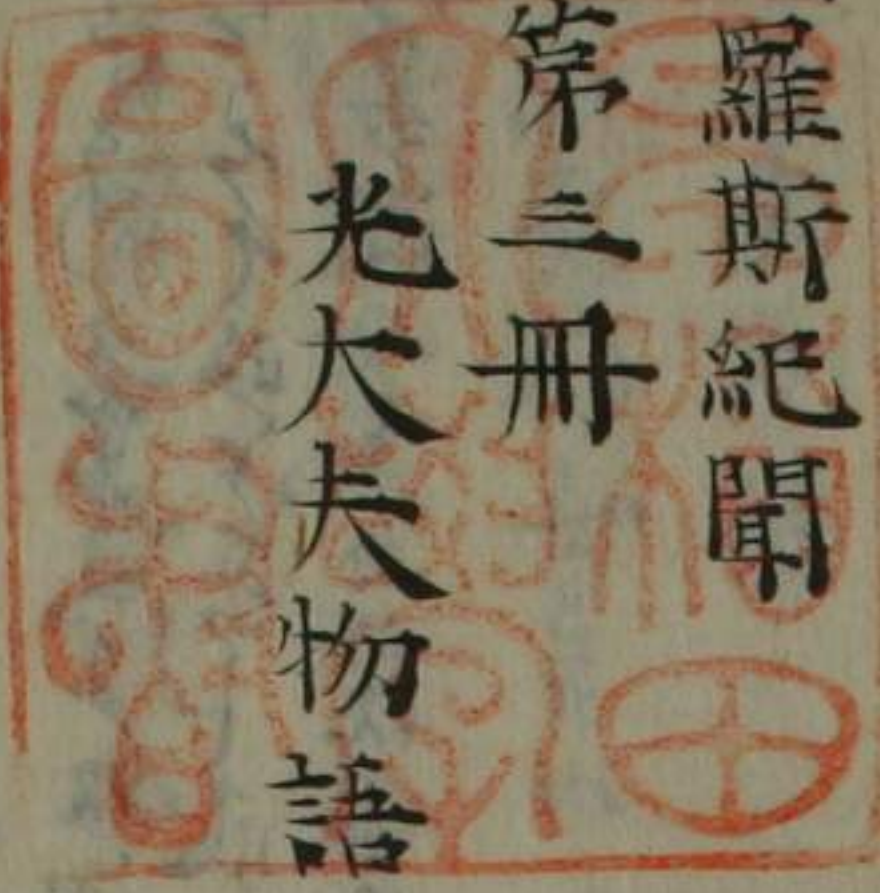 羅斯紀聞
第三冊
光大夫物語